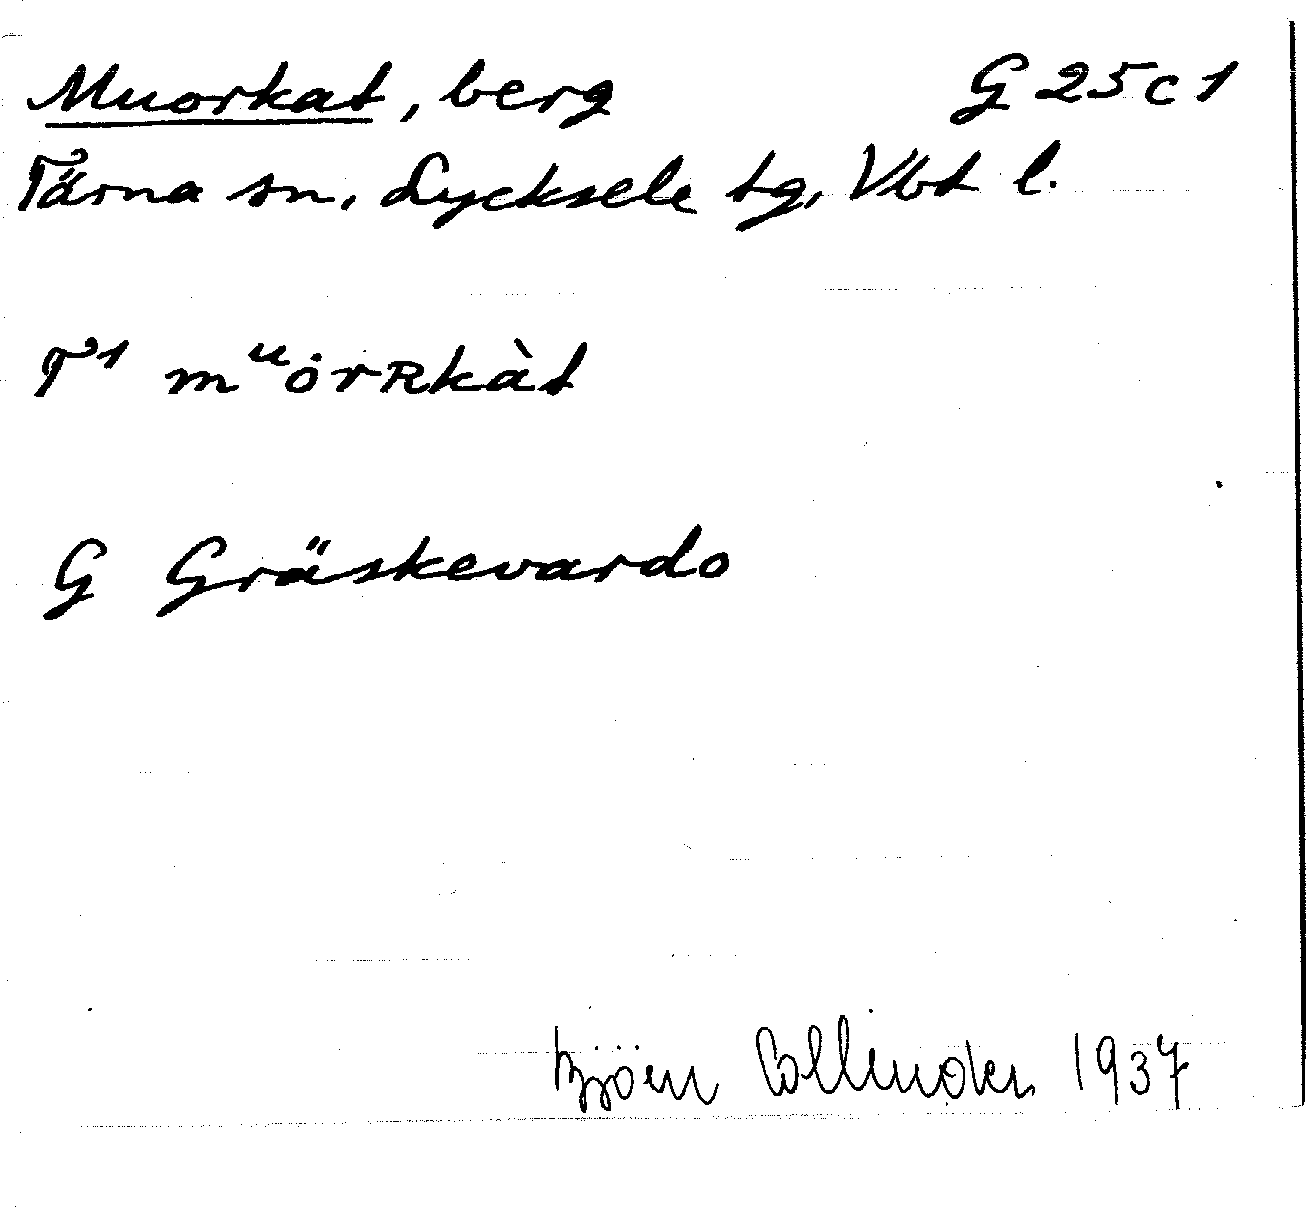 Muorkat, berg G 25 c 1
Tärna sn, Lycksele tg, Vbt l.
T¹ mᵘȯrʀkàt
G Gräskevardo
Björn Collinder 1937